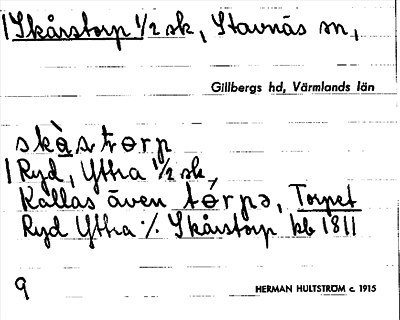 Skårstorp 1/2 sk, Stavnäs sn,
Gillbergs hd, Värmlands län
skàstorp
Ryd, Yttra 1/2 sk,
Kallas även tórpə, Torpet
Ryd Yttra ·/. Skårstorp kb 1811
9
HERMAN HULTSTRÖM c. 1915